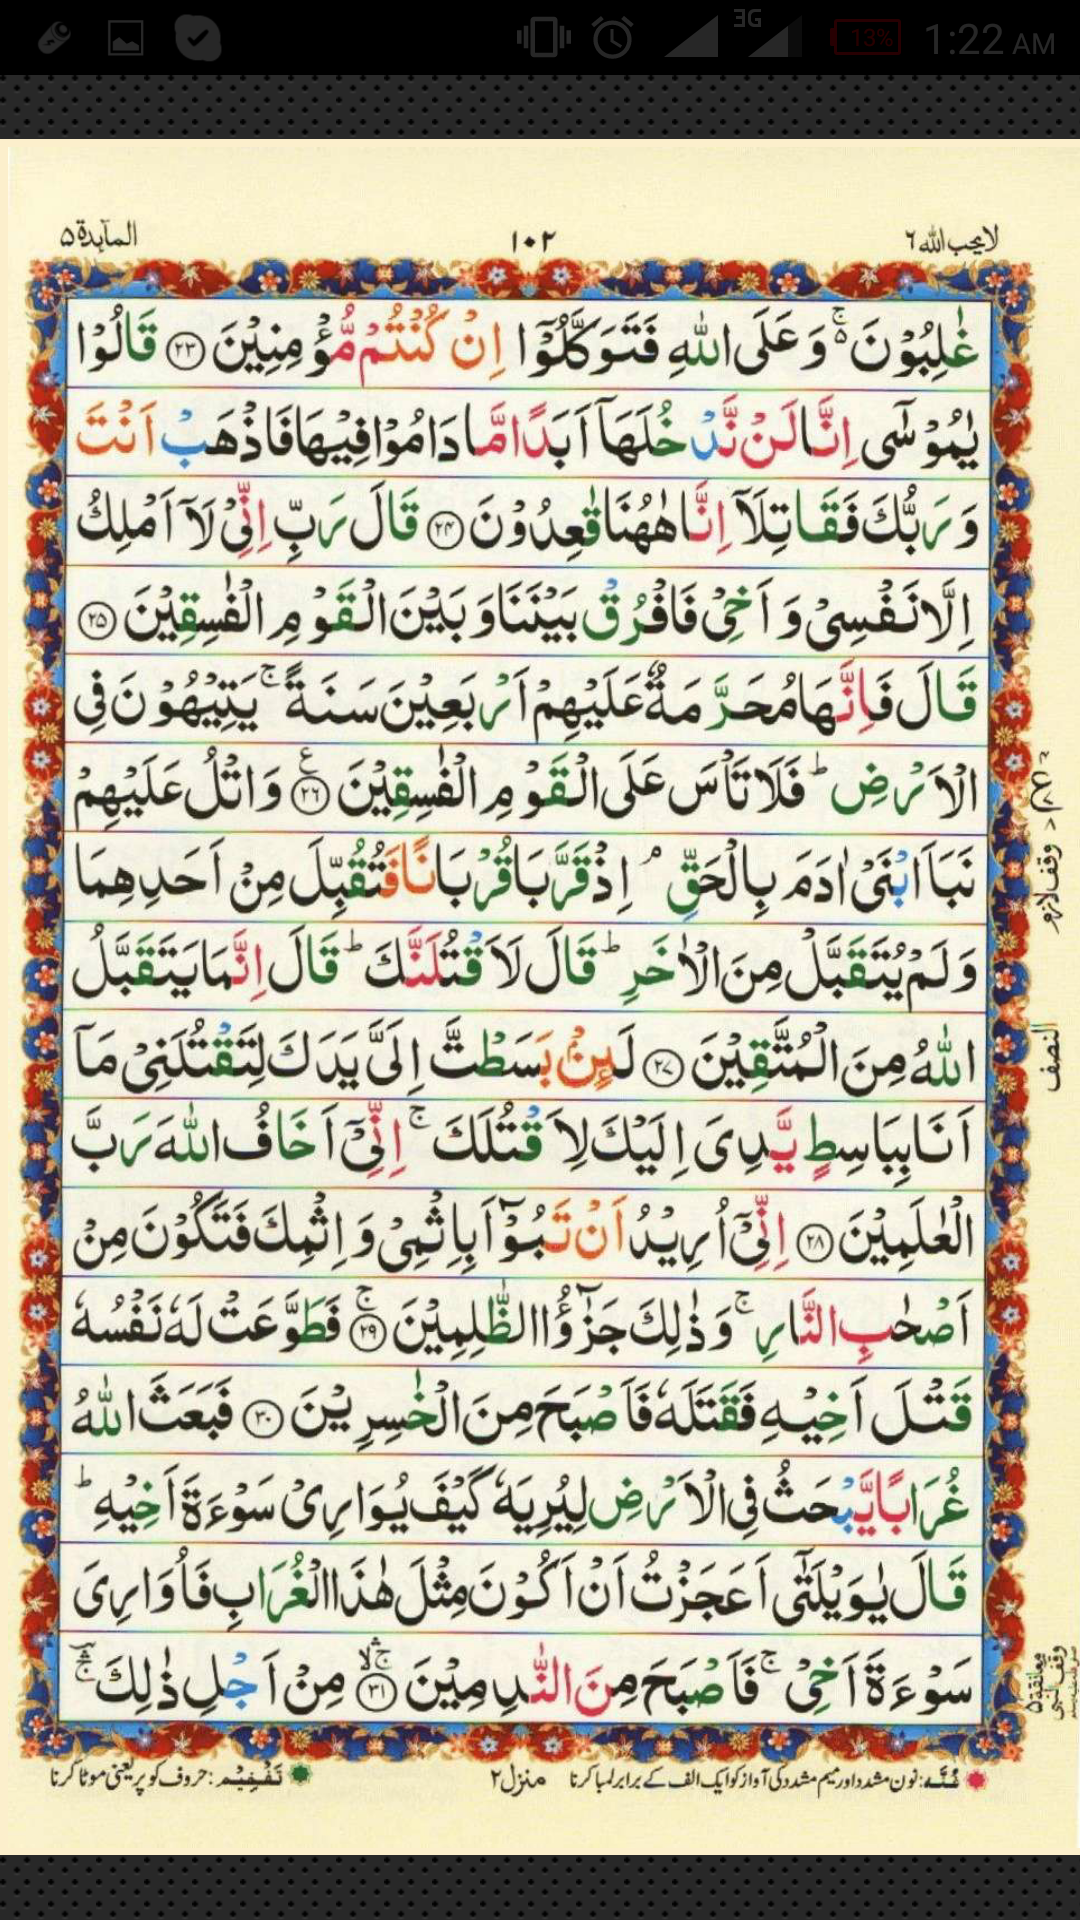 3G
13%
1:22 AM
لا يحب الله ٦
١٠٢
المآئدة ٥
غٰلِبُوْنَ ۚ۬ وَ عَلَى اللّٰهِ فَتَوَكَّلُوْۤا اِنْ كُنْتُمْ مُّؤْمِنِيْنَ ﴿۲۳﴾ قَالُوْا
يٰمُوْسٰۤى اِنَّا لَنْ نَّدْخُلَهَاۤ اَبَدًا مَّا دَامُوْا فِيْهَا فَاذْهَبْ اَنْتَ
وَ رَبُّكَ فَقَاتِلَاۤ اِنَّا هٰهُنَا قٰعِدُوْنَ ﴿۲۴﴾ قَالَ رَبِّ اِنِّيْ لَاۤ اَمْلِكُ
اِلَّا نَفْسِيْ وَ اَخِيْ فَافْرُقْ بَيْنَنَا وَ بَيْنَ الْقَوْمِ الْفٰسِقِيْنَ ﴿۲۵﴾
قَالَ فَاِنَّهَا مُحَرَّمَةٌ عَلَيْهِمْ اَرْبَعِيْنَ سَنَةً ۚ يَتِيْهُوْنَ فِي
الْاَرْضِ ؕ فَلَا تَاْسَ عَلَى الْقَوْمِ الْفٰسِقِيْنَ ﴿۲۶﴾ وَ اتْلُ عَلَيْهِمْ
نَبَاَ ابْنَيْ اٰدَمَ بِالْحَقِّ ۘ اِذْ قَرَّبَا قُرْبَانًا فَتُقُبِّلَ مِنْ اَحَدِهِمَا
وَ لَمْ يُتَقَبَّلْ مِنَ الْاٰخَرِ ؕ قَالَ لَاَقْتُلَنَّكَ ؕ قَالَ اِنَّمَا يَتَقَبَّلُ
اللّٰهُ مِنَ الْمُتَّقِيْنَ ﴿۲۷﴾ لَئِنْۢ بَسَطْتَّ اِلَيَّ يَدَكَ لِتَقْتُلَنِيْ مَاۤ
اَنَا بِبَاسِطٍ يَّدِيَ اِلَيْكَ لِاَقْتُلَكَ ۚ اِنِّيْۤ اَخَافُ اللّٰهَ رَبَّ
الْعٰلَمِيْنَ ﴿۲۸﴾ اِنِّيْۤ اُرِيْدُ اَنْ تَبُوْٓاَ بِاِثْمِيْ وَ اِثْمِكَ فَتَكُوْنَ مِنْ
اَصْحٰبِ النَّارِ ۚ وَ ذٰلِكَ جَزٰٓؤُا الظّٰلِمِيْنَ ﴿ۚ۲۹﴾ فَطَوَّعَتْ لَهٗ نَفْسُهٗ
قَتْلَ اَخِيْهِ فَقَتَلَهٗ فَاَصْبَحَ مِنَ الْخٰسِرِيْنَ ﴿۳۰﴾ فَبَعَثَ اللّٰهُ
غُرَابًا يَّبْحَثُ فِي الْاَرْضِ لِيُرِيَهٗ كَيْفَ يُوَارِيْ سَوْءَةَ اَخِيْهِ ؕ
قَالَ يٰوَيْلَتٰۤى اَعَجَزْتُ اَنْ اَكُوْنَ مِثْلَ هٰذَا الْغُرَابِ فَاُوَارِيَ
سَوْءَةَ اَخِيْ ۚ فَاَصْبَحَ مِنَ النّٰدِمِيْنَ ﴿ۚۙۛ۳۱﴾ مِنْ اَجْلِ ذٰلِكَ ۚۛ
وقف لازم
النصف
غُنَّه: نون مشدد اور میم مشدد کی آواز کو ایک الف کے برابر لمبا کرنا
منزل ۲
تَفْخِيْم: حروف کو پُر یعنی موٹا کرنا